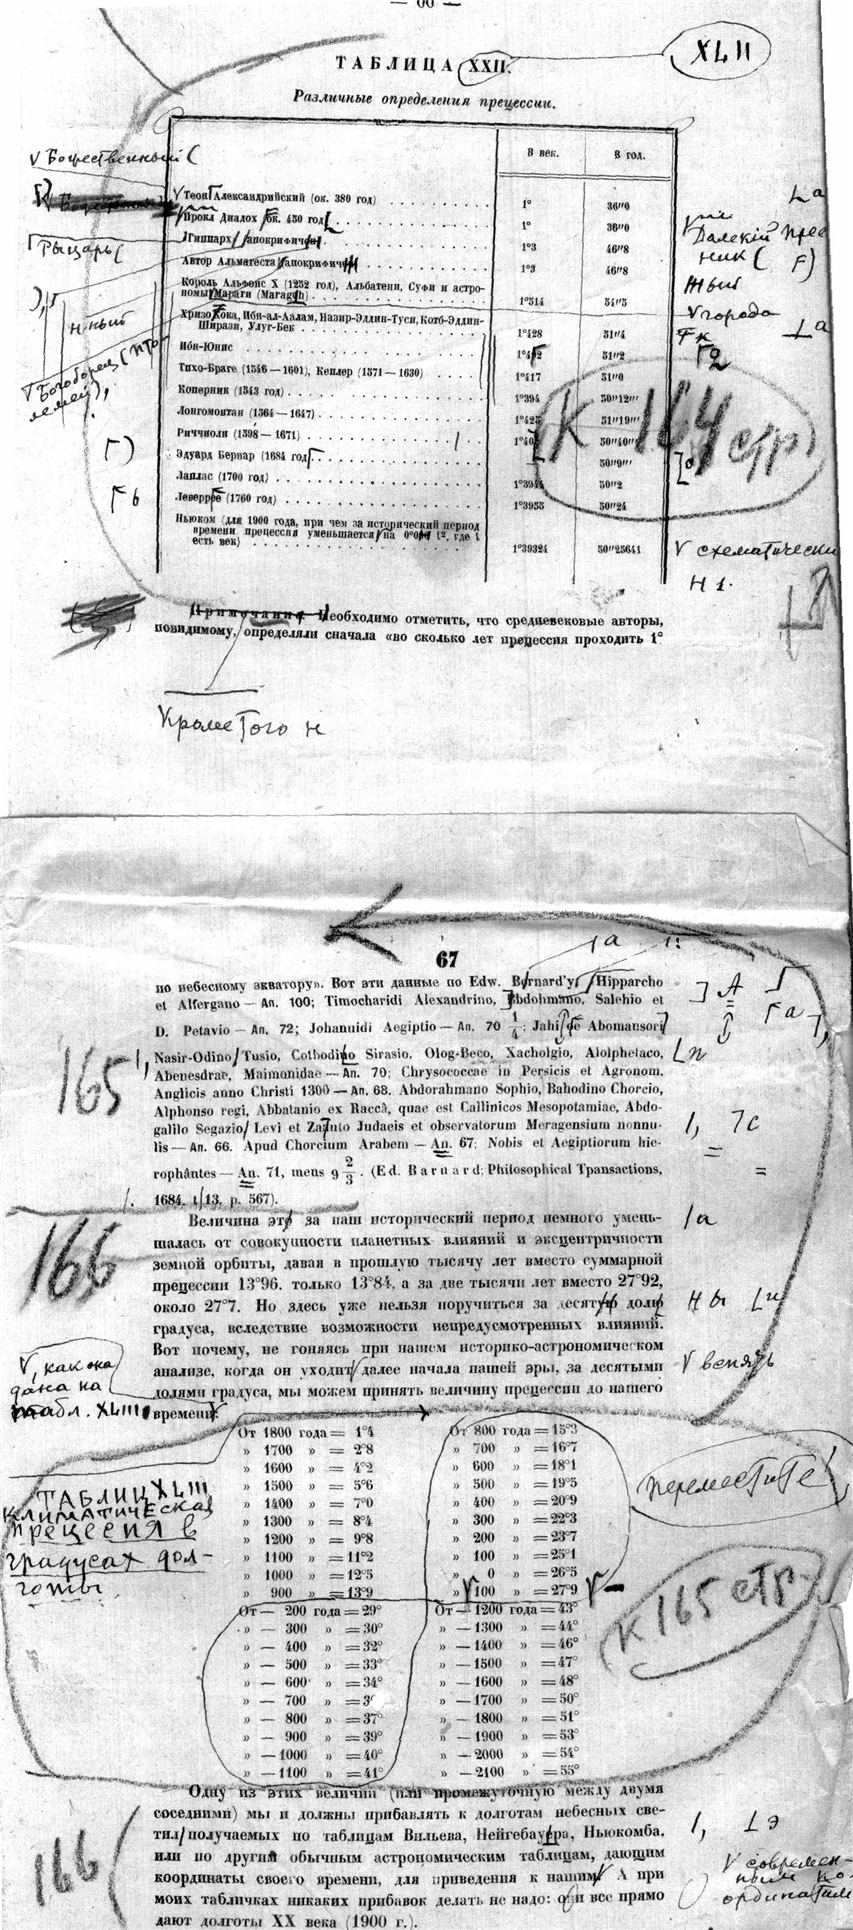 ТАБЛИЦА XXII.
XLII
Различные определения прецессии.
В век. В год.
V Божественный (
Теон Александрийский (ок. 380 год) 1° 36"0
Прокл Диадох ок. 450 год 1° 36"0
Рыцарь (
Гиппарх апокрифичен. 1°3 46"8
Далекий
Автор Альмагеста апокрифич 1°3 46"8
Король Альфонс X (1252 год), Альбатени, Суфи и астро-
номы Мараги (Maragah) 1°514 54"5
V города
Хризокока, Ибн-ал-Аалам, Назир-Эддин-Туси, Котб-Эддин-
Ширази, Улуг-Бек 1°428 51"4
Ибн-Юнис 51"2
V Богоборец (Пто-
лемей),
Тихо-Браге (1546—1601), Кеплер (1571—1630) 1°417 51"0
Коперник (1543 год) 1°394 50"12'''
Лонгомонтан (1564—1647) 1°425 51"19'''
Риччиоли (1598—1671) 50"40'''
К 164 стр
Эдуард Бернар (1684 год — 50"9'''
Лаплас (1700 год) 50"2
Леверрье (1760 год) 1°3955 50"24
Ньюком (для 1900 года, при чем за исторический период
времени прецессия уменьшается на
есть век) 1°39324 50"25641
V схематически
Примечание. Необходимо отметить, что средневековые авторы,
повидимому, определяли сначала «во сколько лет прецессия проходить 1°
Кроме Того н
67
по небесному экватору». Вот эти данные по Edw. Bernard'y: Hipparcho
et Alfergano — An. 100; Timocharidi Alexandrino, Abdohmano, Salehio et
D. Petavio — An. 72; Johannidi Aegiptio — An. 70 1/4; Jahi de Abomansori
165
Nasir-Odino Tusio, Cothodino Sirasio, Olog-Beco, Xacholgio, Alolphetaco,
Abenesdrae, Maimonidae — An. 70; Chrysococcae in Persicis et Agronom.
Anglicis anno Christi 1300 — An. 68. Abdorahmano Sophio, Bahodino Chorcio,
Alphonso regi, Abbatanio ex Raccà, quae est Callinicos Mesopotamiae, Abdo-
galilo Segazio Levi et Zaeuto Judaeis et observatorum Meragensium nonnu-
lis — An. 66. Apud Chorcium Arabem — An. 67; Nobis et Aegiptiorum hie-
rophântes — An. 71, mens 9 2/3. (Ed. Barnard; Philosophical Tpansactions,
1684. t 13, p. 567).
Величина эта за наш исторический период немного умень-
166
шалась от совокупности планетных влияний и эксцентричности
земной орбиты, давая в прошлую тысячу лет вместо суммарной
прецессии 13°96. только 13°84. а за две тысячи лет вместо 27°92,
около 27°7. Но здесь уже нельзя поручиться за десятую долю
градуса, вследствие возможности непредусмотренных влияний.
Вот почему, не гоняясь при нашем историко-астрономическом
V, как она
дана на
табл. XLIII
анализе, когда он уходит далее начала нашей эры, за десятыми
V вспять
долями градуса, мы можем принять величину прецессии до нашего
времени:
От 1800 года = 1°4 От 800 года = 15°3
» 1700 » = 2°8 » 700 » = 16°7
» 1600 » = 4°2 » 600 » = 18°1
» 1500 » = 5°6 » 500 » = 19°5
» 1400 » = 7°0 » 400 » = 20°9
» 1300 » = 8°4 » 300 » = 22°3
» 1200 » = 9°8 » 200 » = 23°7
» 1100 » = 11°2 » 100 » = 25°1
» 1000 » = 12°5 » 0 » = 26°5
» 900 » = 13°9 » 100 » = 27°9
переместите!
ТАБЛИЦ XLIII
КЛИМАТИЧЕСКАЯ
прецессия в
градусах дол-
готы
К 165 стр.
От — 200 года = 29° От — 1200 года = 43°
» — 300 » = 30° » — 1300 » = 44°
» — 400 » = 32° » — 1400 » = 46°
» — 500 » = 33° » — 1500 » = 47°
» — 600 » = 34° » — 1600 » = 48°
» — 700 » » — 1700 » = 50°
» — 800 » = 37° » — 1800 » = 51°
» — 900 » = 39° » — 1900 » = 53°
» — 1000 » = 40° » — 2000 » = 54°
» — 1100 » = 41° » — 2100 » = 55°
Одну из этих величин (или промежуточную между двумя
соседними) мы и должны прибавлять к долготам небесных све-
166
тил получаемых по таблицам Вильева, Нейгебауера, Ньюкомба.
или по другим обычным астрономическим таблицам, дающим
V современ-
ным ко-
ординатам
координаты своего времени, для приведения к нашим А при
моих табличках никаких прибавок делать не надо: они все прямо
дают долготы XX века (1900 г.).